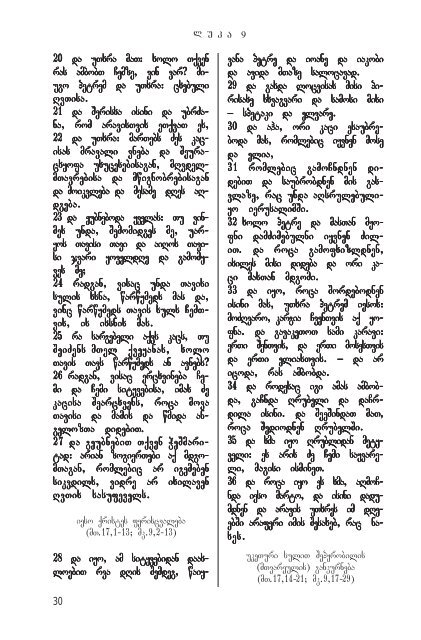 ლუკა 9
20 და უთხრა მათ: ხოლო თქვენ
რას ამბობთ ჩემზე, ვინ ვარ? მი-
უგო პეტრემ და უთხრა: ცხებული
ღვთისა.
21 და შერისხა ისინი და უბრძა-
ნა, რომ არავისთვის ეთქვათ ეს,
22 და უთხრა: მართებს ძეს კაც-
ისას მრავალი ვნება და შეურა-
ცხყოფა უხუცესებისაგან, მღვდელ-
მთავრებისა და მწიგნობრებისაგან
და მოიკვლება და მესამე დღეს აღ-
დგება.
23 და ეუბნებოდა ყველას: თუ ვინ-
მეს უნდა, შემომიდგეს მე, უარ-
ყოს თავისი თავი და აიღოს თავი-
სი ჯვარი ყოველდღე და გამომყ-
ვეს მე;
24 რადგან, ვისაც უნდა თავისი
სულის ხსნა, წარწყმედს მას და,
ვინც წარწყმედს თავის სულს ჩემთ-
ვის, ის იხსნის მას.
25 რა სარგებელი აქვს კაცს, თუ
შეიძენს მთელ ქვეყანას, ხოლო
თავის თავს წარწყმედს ან ავნებს?
26 რადგან, ვისაც ერცხვინება ჩე-
მი და ჩემი სიტყვებისა, იმას ძე
კაცისა შეარცხვენს, როცა მოვა
თავისი და მამის და წმიდა ან-
გელოზთა დიდებით.
27 და გეუბნებით თქვენ ჭეშმარი-
ტად: არიან ზოგიერთები აქ მდგო-
მთაგან, რომლებიც არ იგემებენ
სიკვდილს, ვიდრე არ იხილავენ
ღვთის სასუფეველს.
იესო ქრისტეს ფერისცვალება
(მთ.17,1-13; მკ.9,2-13)
28 და იყო, ამ სიტყვებიდან დაახ-
ლოებით რვა დღის შემდეგ, წაიყ-
ვანა პეტრე და იოანე და იაკობი
და ავიდა მთაზე სალოცავად.
29 და გახდა ლოცვისას მისი პი-
რისახე სხვაგვარი და სამოსი მისი
– სპეტაკი და ელვარე.
30 და აჰა, ორი კაცი ესაუბრე-
ბოდა მას, რომლებიც იყვნენ მოსე
და ელია,
31 რომლებიც გამოჩნდნენ დი-
დებით და საუბრობდნენ მის გას-
ვლაზე, რაც უნდა აღსრულებული-
ყო იერუსალიმში.
32 ხოლო პეტრე და მასთან მყო-
ფნი დამძიმებულნი იყვნენ ძილ-
ით. და როცა გამოფხიზლდნენ,
იხილეს მისი დიდება და ორი კა-
ცი მასთან მდგომი.
33 და იყო, როცა შორდებოდნენ
ისინი მას, უთხრა პეტრემ იესოს:
მოძღვარო, კარგია ჩვენთვის აქ ყო-
ფნა. და გავაკეთოთ სამი კარავი:
ერთი შენთვის, და ერთი მოსესთვის
და ერთი ელიასთვის. – და არ
იცოდა, რას ამბობდა.
34 და როდესაც იგი ამას ამბობ-
და, გაჩნდა ღრუბელი და დაჩრ-
დილა ისინი. და შეეშინდათ მათ,
როცა შედიოდნენ ღრუბელში.
35 და ხმა იყო ღრუბლიდან მეტყ-
ველი: ეს არის ძე ჩემი საყვარე-
ლი, მაგისი ისმინეთ.
36 და როცა იყო ეს ხმა, აღმოჩ-
ნდა იესო მარტო, და ისინი დადუ-
მდნენ და არავის უთხრეს იმ დღე-
ებში არაფერი იმის შესახებ, რაც ნა-
ხეს.
უკეთური სულით შეპყრობილის
(მთვარეულის) განკურნება
(მთ.17,14-21; მკ.9,17-29)
30